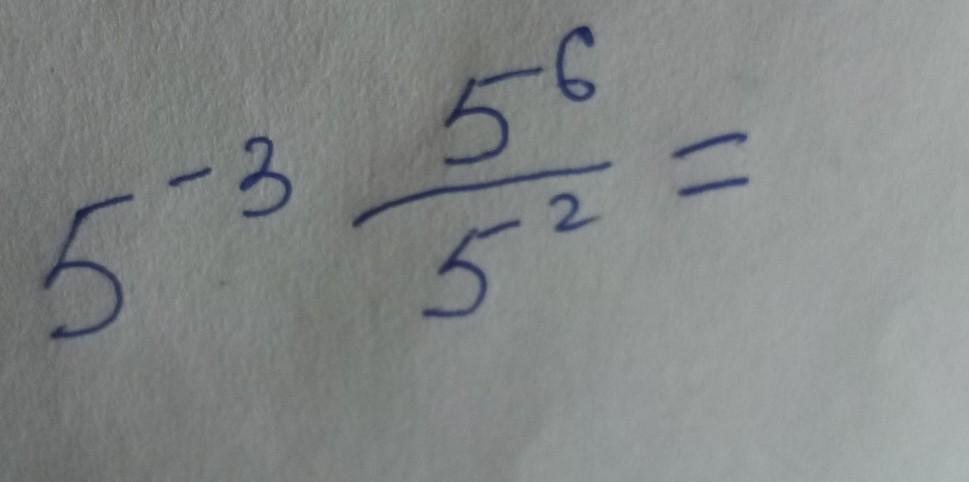 5⁻³ 5⁶/5² =